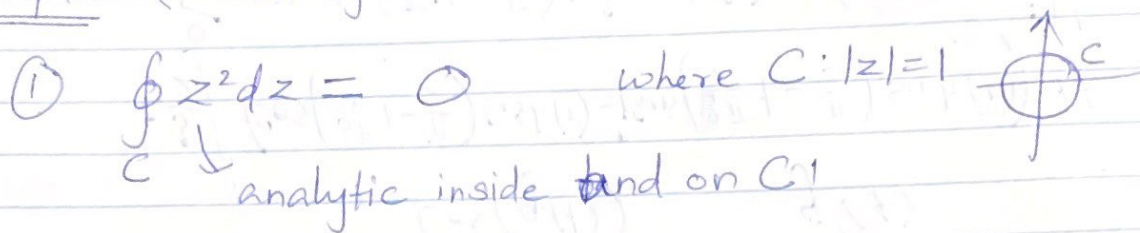 ① ∮ z²dz = 0 where C : |z|=1 C
C ↳ analytic inside and on C!